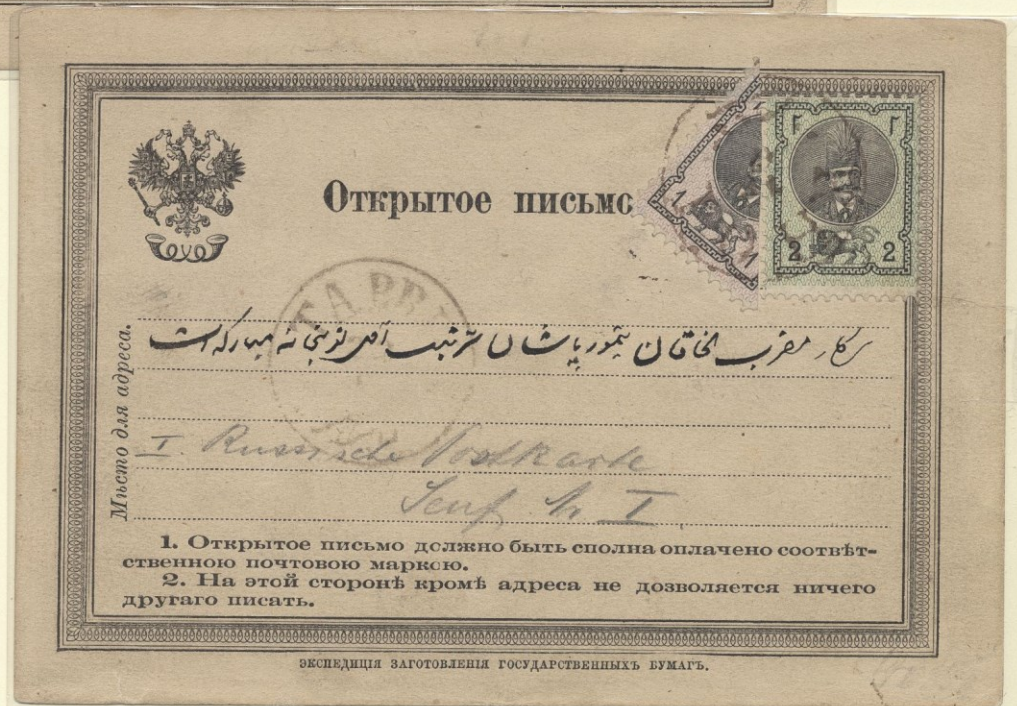 Открытое письмо
1
1
۲ ۲
2 2
TABRI
سرکار مقرب الخاقان تیمور پاشا خان سرتیپ
Мѣсто для адреса.
I. Russische Postkarte
Senf Nr I
1. Открытое письмо должно быть сполна оплачено соотвѣт-
ственною почтовою маркою.
2. На этой сторонѣ кромѣ адреса не дозволяется ничего
другаго писать.
ЭКСПЕДИЦІЯ ЗАГОТОВЛЕНІЯ ГОСУДАРСТВЕННЫХЪ БУМАГЪ.